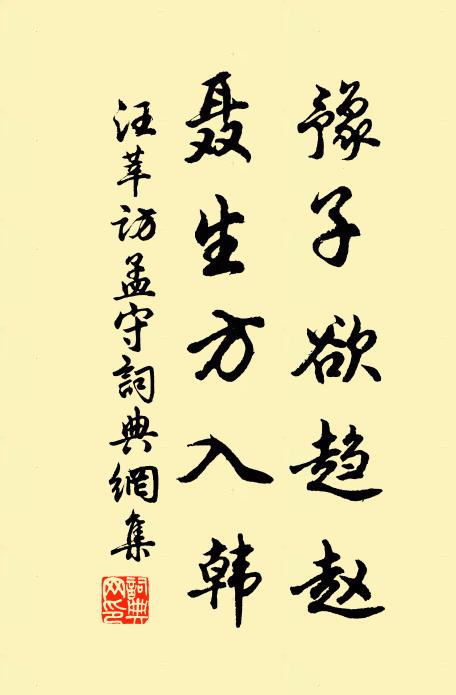 豫子欲趋赵
聂生方入韩
汪莘访孟守詞典網集
詞典网印